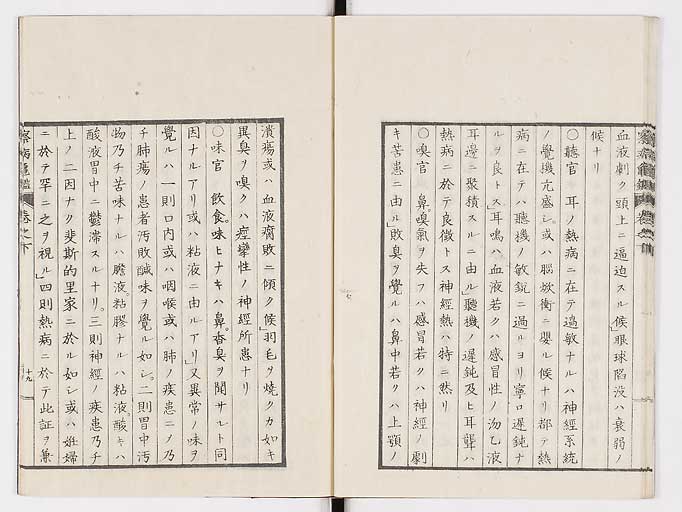 血液劇ク頭上ニ逼迫スル候」眼球陷没ハ衰弱ノ
候ナリ
〇聽官　耳ノ熱病ニ在テ過敏ナルハ神經系統
ノ覺機亢盛シ或ハ腦焮衝ニ嬰ル候ナリ都テ熱
病ニ在テハ聽機ノ敏銳ニ過ルヨリ寧ロ遲鈍ナ
ルヲ良トス」耳鳴ハ血液若クハ感冒性ノ沕乙液
耳邊ニ聚積スルニ由ル」聽機ノ遲鈍及ヒ耳聾ハ
熱病ニ於テ良徵トス神經熱ハ特ニ然リ
〇嗅官　鼻。嗅氣ヲ失フハ感冒若クハ神經ノ劇
キ苦患ニ由ル」敗臭ヲ覺ルハ鼻中若クハ上顎ノ
潰瘍或ハ血液腐敗ニ傾ク候」羽毛ヲ燒クカ如キ
異臭ヲ嗅クハ痙攣性ノ神經所患ナリ
〇味官　飮食。味ヒナキハ鼻。香臭ヲ聞サルト同
因ナルアリ或ハ粘液ニ由ルアリ」又異常ノ味ヲ
覺ルハ一則口内或ハ咽喉或ハ肺ノ疾患ニノ乃
チ肺瘍ノ患者汚敗鹹味ヲ覺ル如シ。二則胃中汚
物乃チ苦味ナルハ膽液。粘膠ナルハ粘液。酸キハ
酸液胃中ニ鬱滯スルナリ。三則神經ノ疾患乃チ
上ノ二因ナク斐斯的里家ニ於ル如シ或ハ姙婦
ニ於テ罕ニ之ヲ視ル」四則熱病ニ於テ此証ヲ兼
察病龜鑑 卷之下
十九